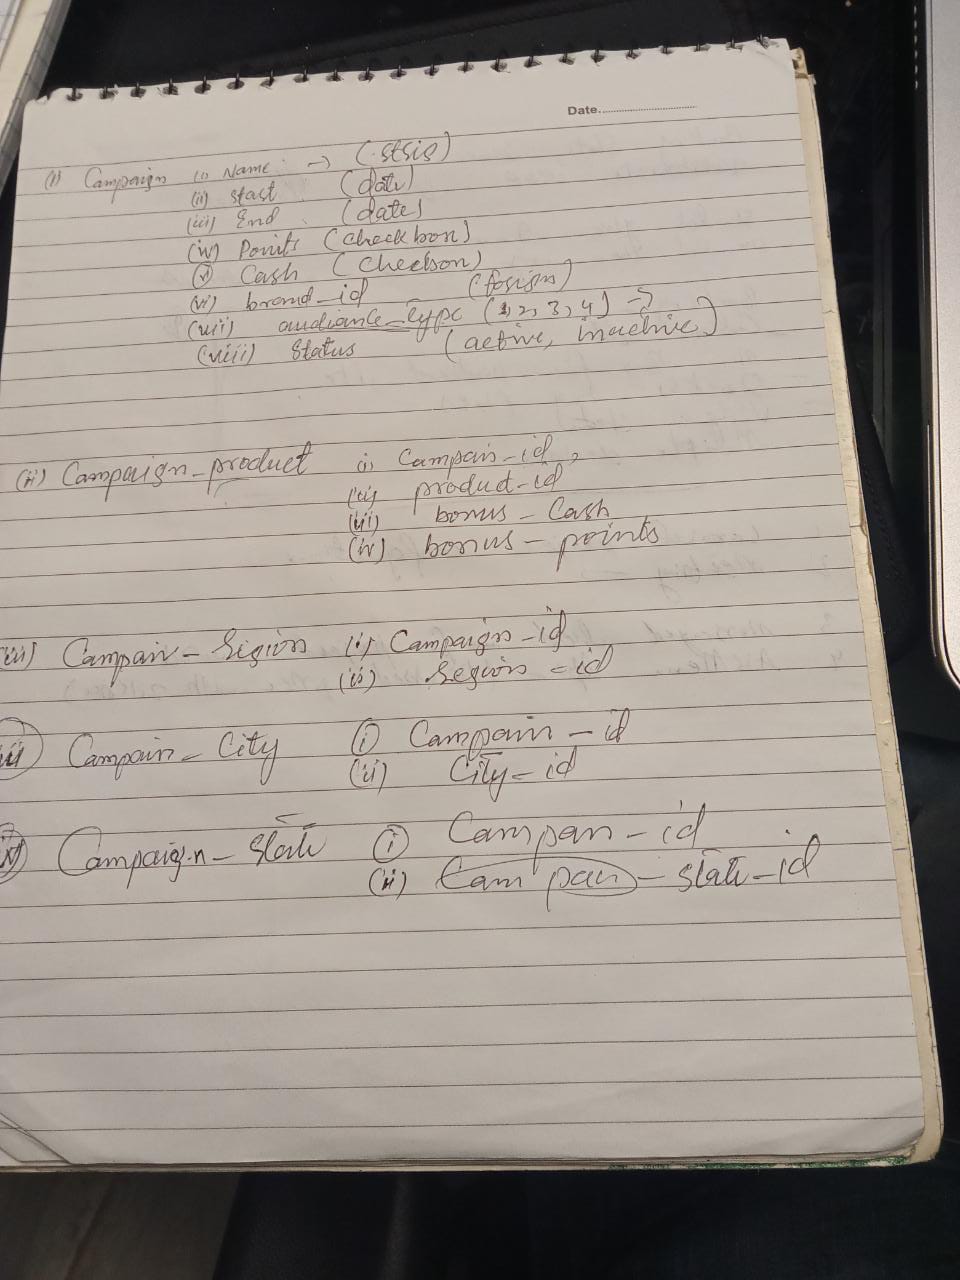 Date
(i) Campaign (i) Name : → (stsis)
(ii) start (date)
(iii) End : (date)
(iv) Points (checkbon)
(v) Cash (checkbon)
(vi) brand_id (fosign)
(vii) audiance_type (1, 2, 3, 4) →
(viii) Status (active, inactive)
(ii) Campaign_product (i) Campain-id,
(ii) product-id
(iii) bonus - Cash
(iv) bonus - points
(iii) Campain - Region (i) Campaign-id
(ii) Region-id
iii Campain - City (i) Campain - id
(ii) City-id
Campaign - State (i) Campan - id
(ii) Campan - state-id